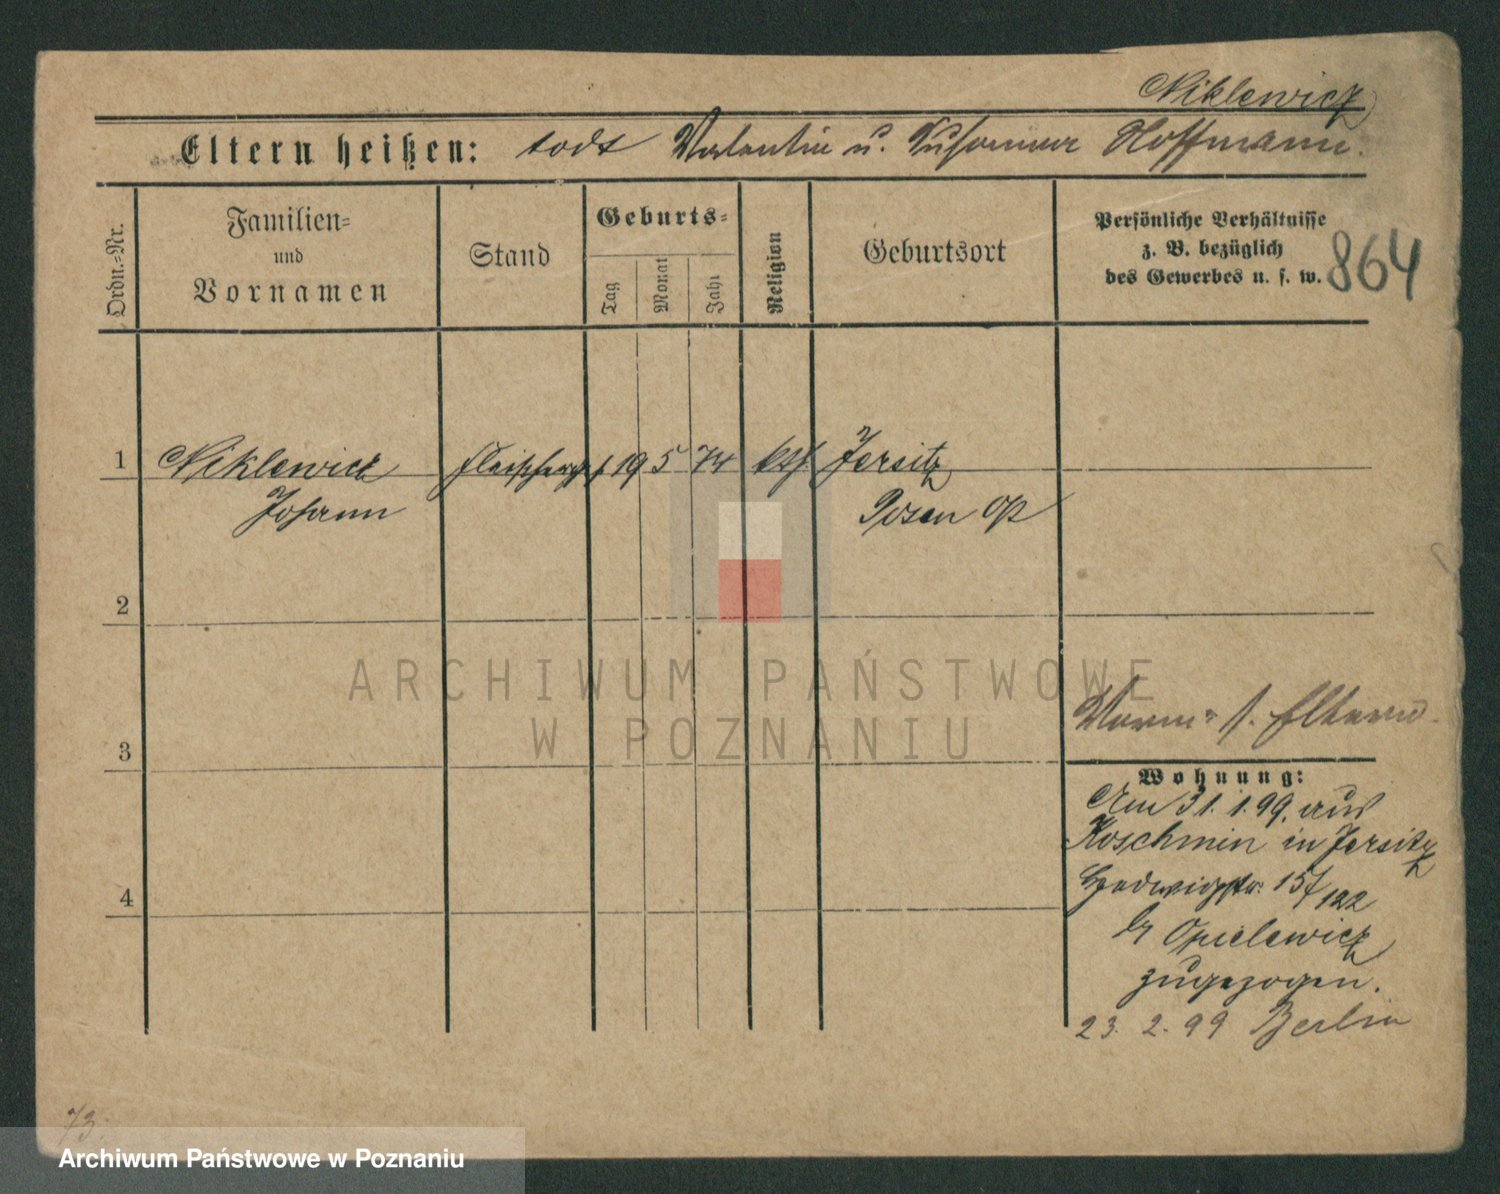 Niklewicz
Eltern heißen: todt Valentin u. Susanna Hoffmann.
Ordn.-Nr.
Familien-
und
Vornamen
Stand
Geburts-
Tag
Monat
Jahr
Religion
Geburtsort
Persönliche Verhältnisse
z. B. bezüglich
des Gewerbes u. s. w.
864
1 Niklewicz Fleischerges. 19 5 74 kth Jersitz
Johann Posen Op
2
ARCHIWUM PAŃSTWOWE
W POZNANIU
3
4
s. Eltern
Wohnung:
Am 31. 1. 99. aus
Koschmin in Jersitz
Hedwigstr. 15/122
Opielewicz
zugezogen.
23. 2. 99 Berlin
73.
Archiwum Państwowe w Poznaniu